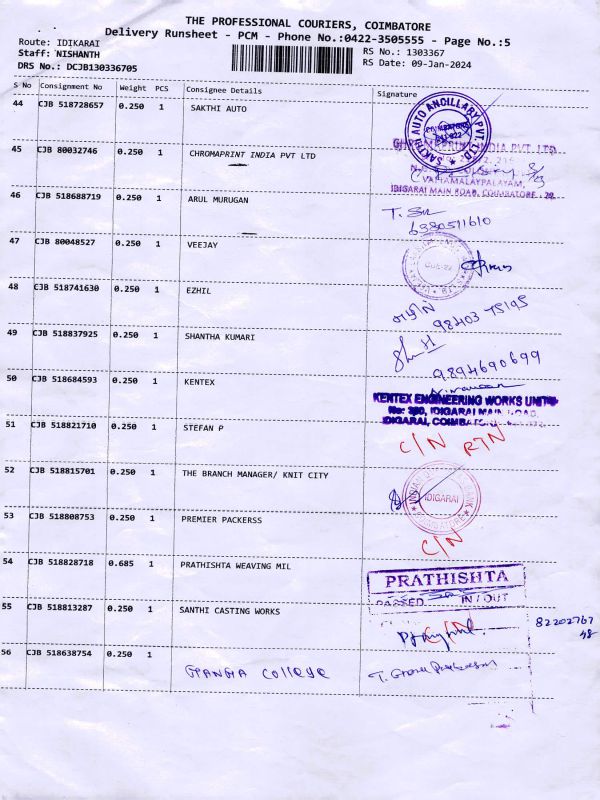 THE PROFESSIONAL COURIERS, COIMBATORE
Delivery Runsheet - PCM - Phone No.:0422-3505555 - Page No.:5
Route: IDIKARAI
RS No.: 1303367
Staff: NISHANTH
RS Date: 09-Jan-2024
DRS No.: DCJB130336705
S No Consignment No Weight PCS Consignee Details Signature
44 CJB 518728657 0.250 1 SAKTHI AUTO
SAKTHI AUTO ANCILLARY PVT LTD
45 CJB 80032746 0.250 1 CHROMAPRINT INDIA PVT LTD
CHROMAPRINT INDIA PVT. LTD
VATTAMALAYPALAYAM,
IDIGARAI MAIN ROAD, COIMBATORE - 22
46 CJB 518688719 0.250 1 ARUL MURUGAN
6380511610
47 CJB 80048527 0.250 1 VEEJAY
48 CJB 518741630 0.250 1 EZHIL
98403 75195
49 CJB 518837925 0.250 1 SHANTHA KUMARI
9894690699
50 CJB 518684593 0.250 1 KENTEX
KENTEX ENGINEERING WORKS UNIT
IDIGARAI MAIN ROAD,
IDIGARAI, COIMBATORE
51 CJB 518821710 0.250 1 STEFAN P
C/N RTN
52 CJB 518815701 0.250 1 THE BRANCH MANAGER/ KNIT CITY
INDIAN BANK
IDIGARAI
COIMBATORE
53 CJB 518808753 0.250 1 PREMIER PACKERSS
C/N
54 CJB 518828718 0.685 1 PRATHISHTA WEAVING MIL
PRATHISHTA
PASSED IN / OUT
55 CJB 518813287 0.250 1 SANTHI CASTING WORKS
C/N
82202767
48
56 CJB 518638754 0.250 1 GANGA College